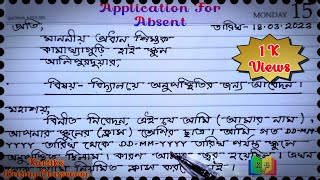 Application For
Absent
2nd Week 2-2/3-363
MONDAY 15
প্রতি,
তারিখ-18-03-2023
মাননীয় প্রধান শিক্ষক
কামাখ্যাগুড়ি হাই স্কুল
আলিপুরদুয়ার,
1K
Views
বিষয়- বিদ্যালয়ে অনুপস্থিতির জন্য আবেদন।
মহাশয়,
বিনীত নিবেদন, এই যে আমি (আমার নাম),
আপনার স্কুলের (ক্লাস) শ্রেণির ছাত্র। আমি গত DD-MM-
YYYY তারিখ থেকে DD-MM-YYYY তারিখ পর্যন্ত স্কুলে
কারণ জ্বর
Writing Classroom